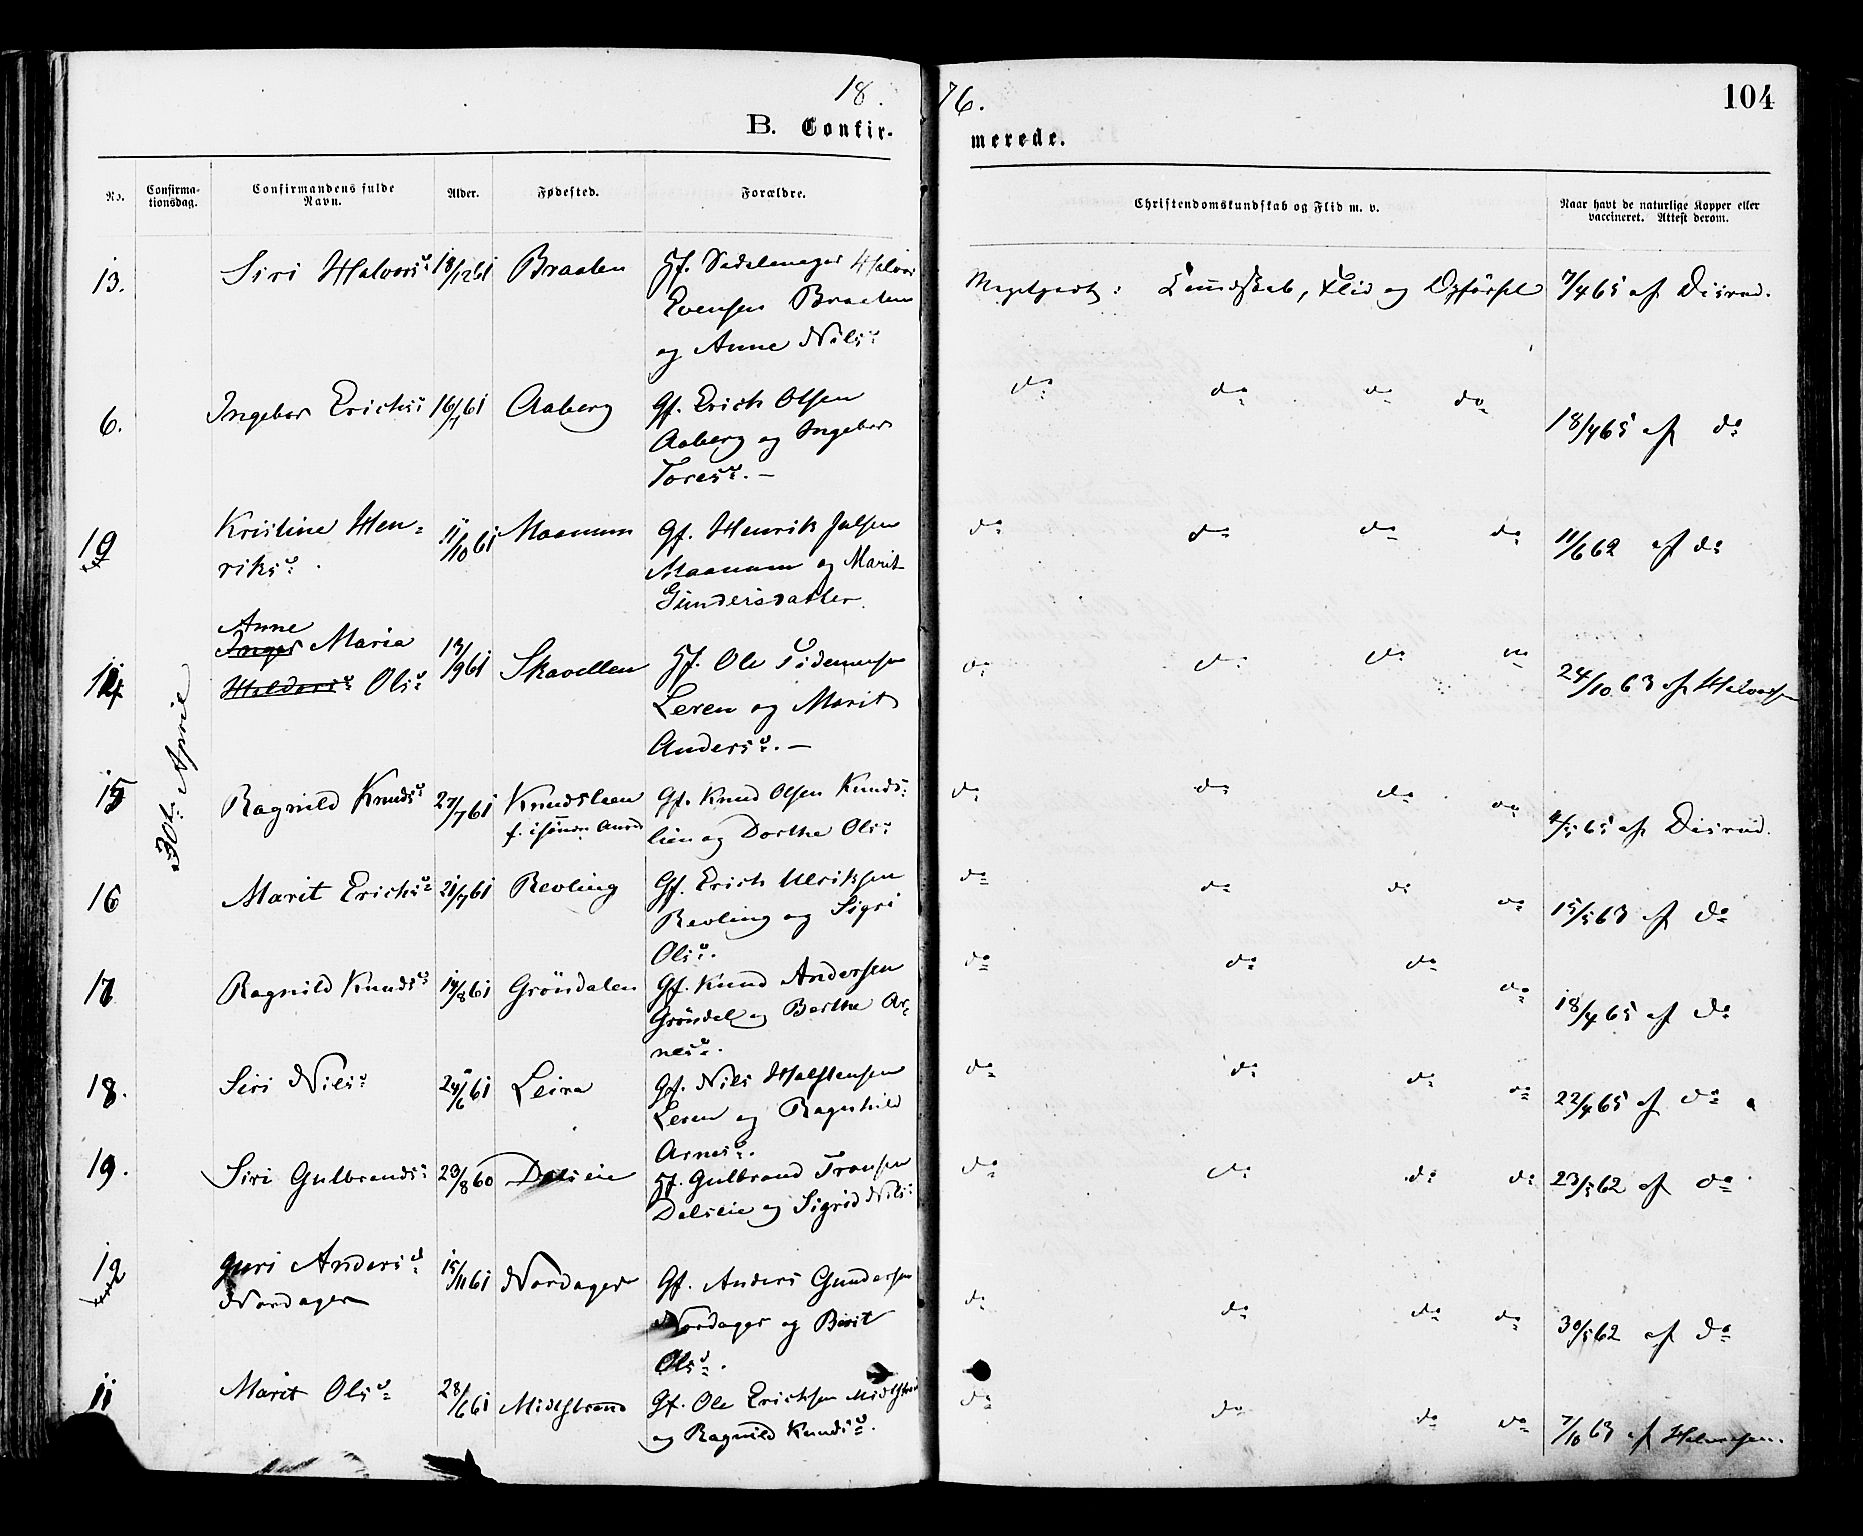 18 76.
104
B. Confir- merede.
No. Confirma-tionsdag. Confirmandens fulde Navn. Alder. Fødested. Forældre. Christendomskundskab og Flid m. v. Naar havt de naturlige Kopper eller vaccineret. Attest derom.
30te April
13. Siri Halvorsd: 18/12 61 Braaten Gf. Sadelmager Halvor Megetgodt: Kundskab, Flid og Opførsel 7/4 65 af Disrud.
Evensen Braaten
og Anne Nilsd:
6. Ingebor Erichsd: 16/7 61 Aaberg Gf. Erich Olsen do do do do 18/4 65 af do
Aaberg og Ingebor
Toresd:. —
10 Kristine Hen= 11/10 61 Maanum Gf. Henrik Julsen do do do do 11/6 62 af do
riksd: Maanum og Marit
Gundersdatter.
Anne
14 Inger Maria 13/9 61 Skavellen Gf. Ole Tidemansen do do do do 24/10 63 af Halvorsen
Haldorsd: Olsd: Leren og Marit
Andersd:. —
15 Ragnild Knudsd: 27/7 61 Knudslien Gf. Knud Olsen Knuds= do do do do 4/5 65 af Disrud.
f. i søndre Aurd lien og Dorthe Olsd:
16 Marit Erichsd: 21/7 61 Revling Gf. Erich Ulriksen do do do do 15/5 63 af do
Revling og Sigri
Olsd:.
17 Ragnild Knudsd: 14/8 61 Gröndalen Gf. Knud Andersen do do do do 18/4 65 af do
Gröndal og Berthe Ar=
nesd:.
18. Siri Nilsd: 24/6 61 Leira Gf. Nils Halstensen do do do do 22/4 65 af do
Leren og Ragnhild
Arnesd:.
19. Siri Gulbrandsd: 23/8 60 Dalseie Gf. Gulbrand Tronsen do do do do 23/5 62 af do
Dalseie og Sigrid Nilsd:
12 Guri Andersd: 15/11 61 Nordager Gf. Anders Gundersen do do do do 30/5 62 af do
Nordager Nordager og Berit
Olsd:.
11 Marit Olsd: 28/6 61 Midtstrand Gf. Ole Erichsen Midtstran do do do do 7/10 63 af Halvorsen.
og Ragnild Knudsd:.